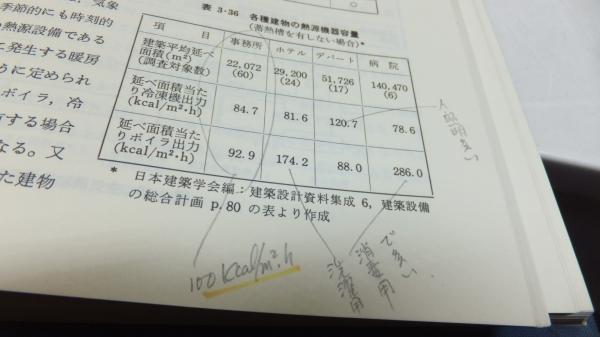 気象
季節的にも時刻的
熱源設備である
に発生する暖房
うに定められ
ボイラ，冷
する場合
なる。又
た建物
表 3・36 各種建物の熱源機器容量
(蓄熱槽を有しない場合)*
項 目 事務所 ホテル デパート 病院
建築平均延べ面積(m²)(調査対象数) 22,072(60) 29,200(24) 51,726(17) 140,470(6)
延べ面積当たり冷凍機出力(kcal/m²·h) 84.7 81.6 120.7 78.6
延べ面積当たりボイラ出力(kcal/m²·h) 92.9 174.2 88.0 286.0
* 日本建築学会編：建築設計資料集成 6，建築設備
の総合計画 p.80 の表より作成
100 Kcal/m²·h
洗濯用
消毒用
で多い
人 照明多い